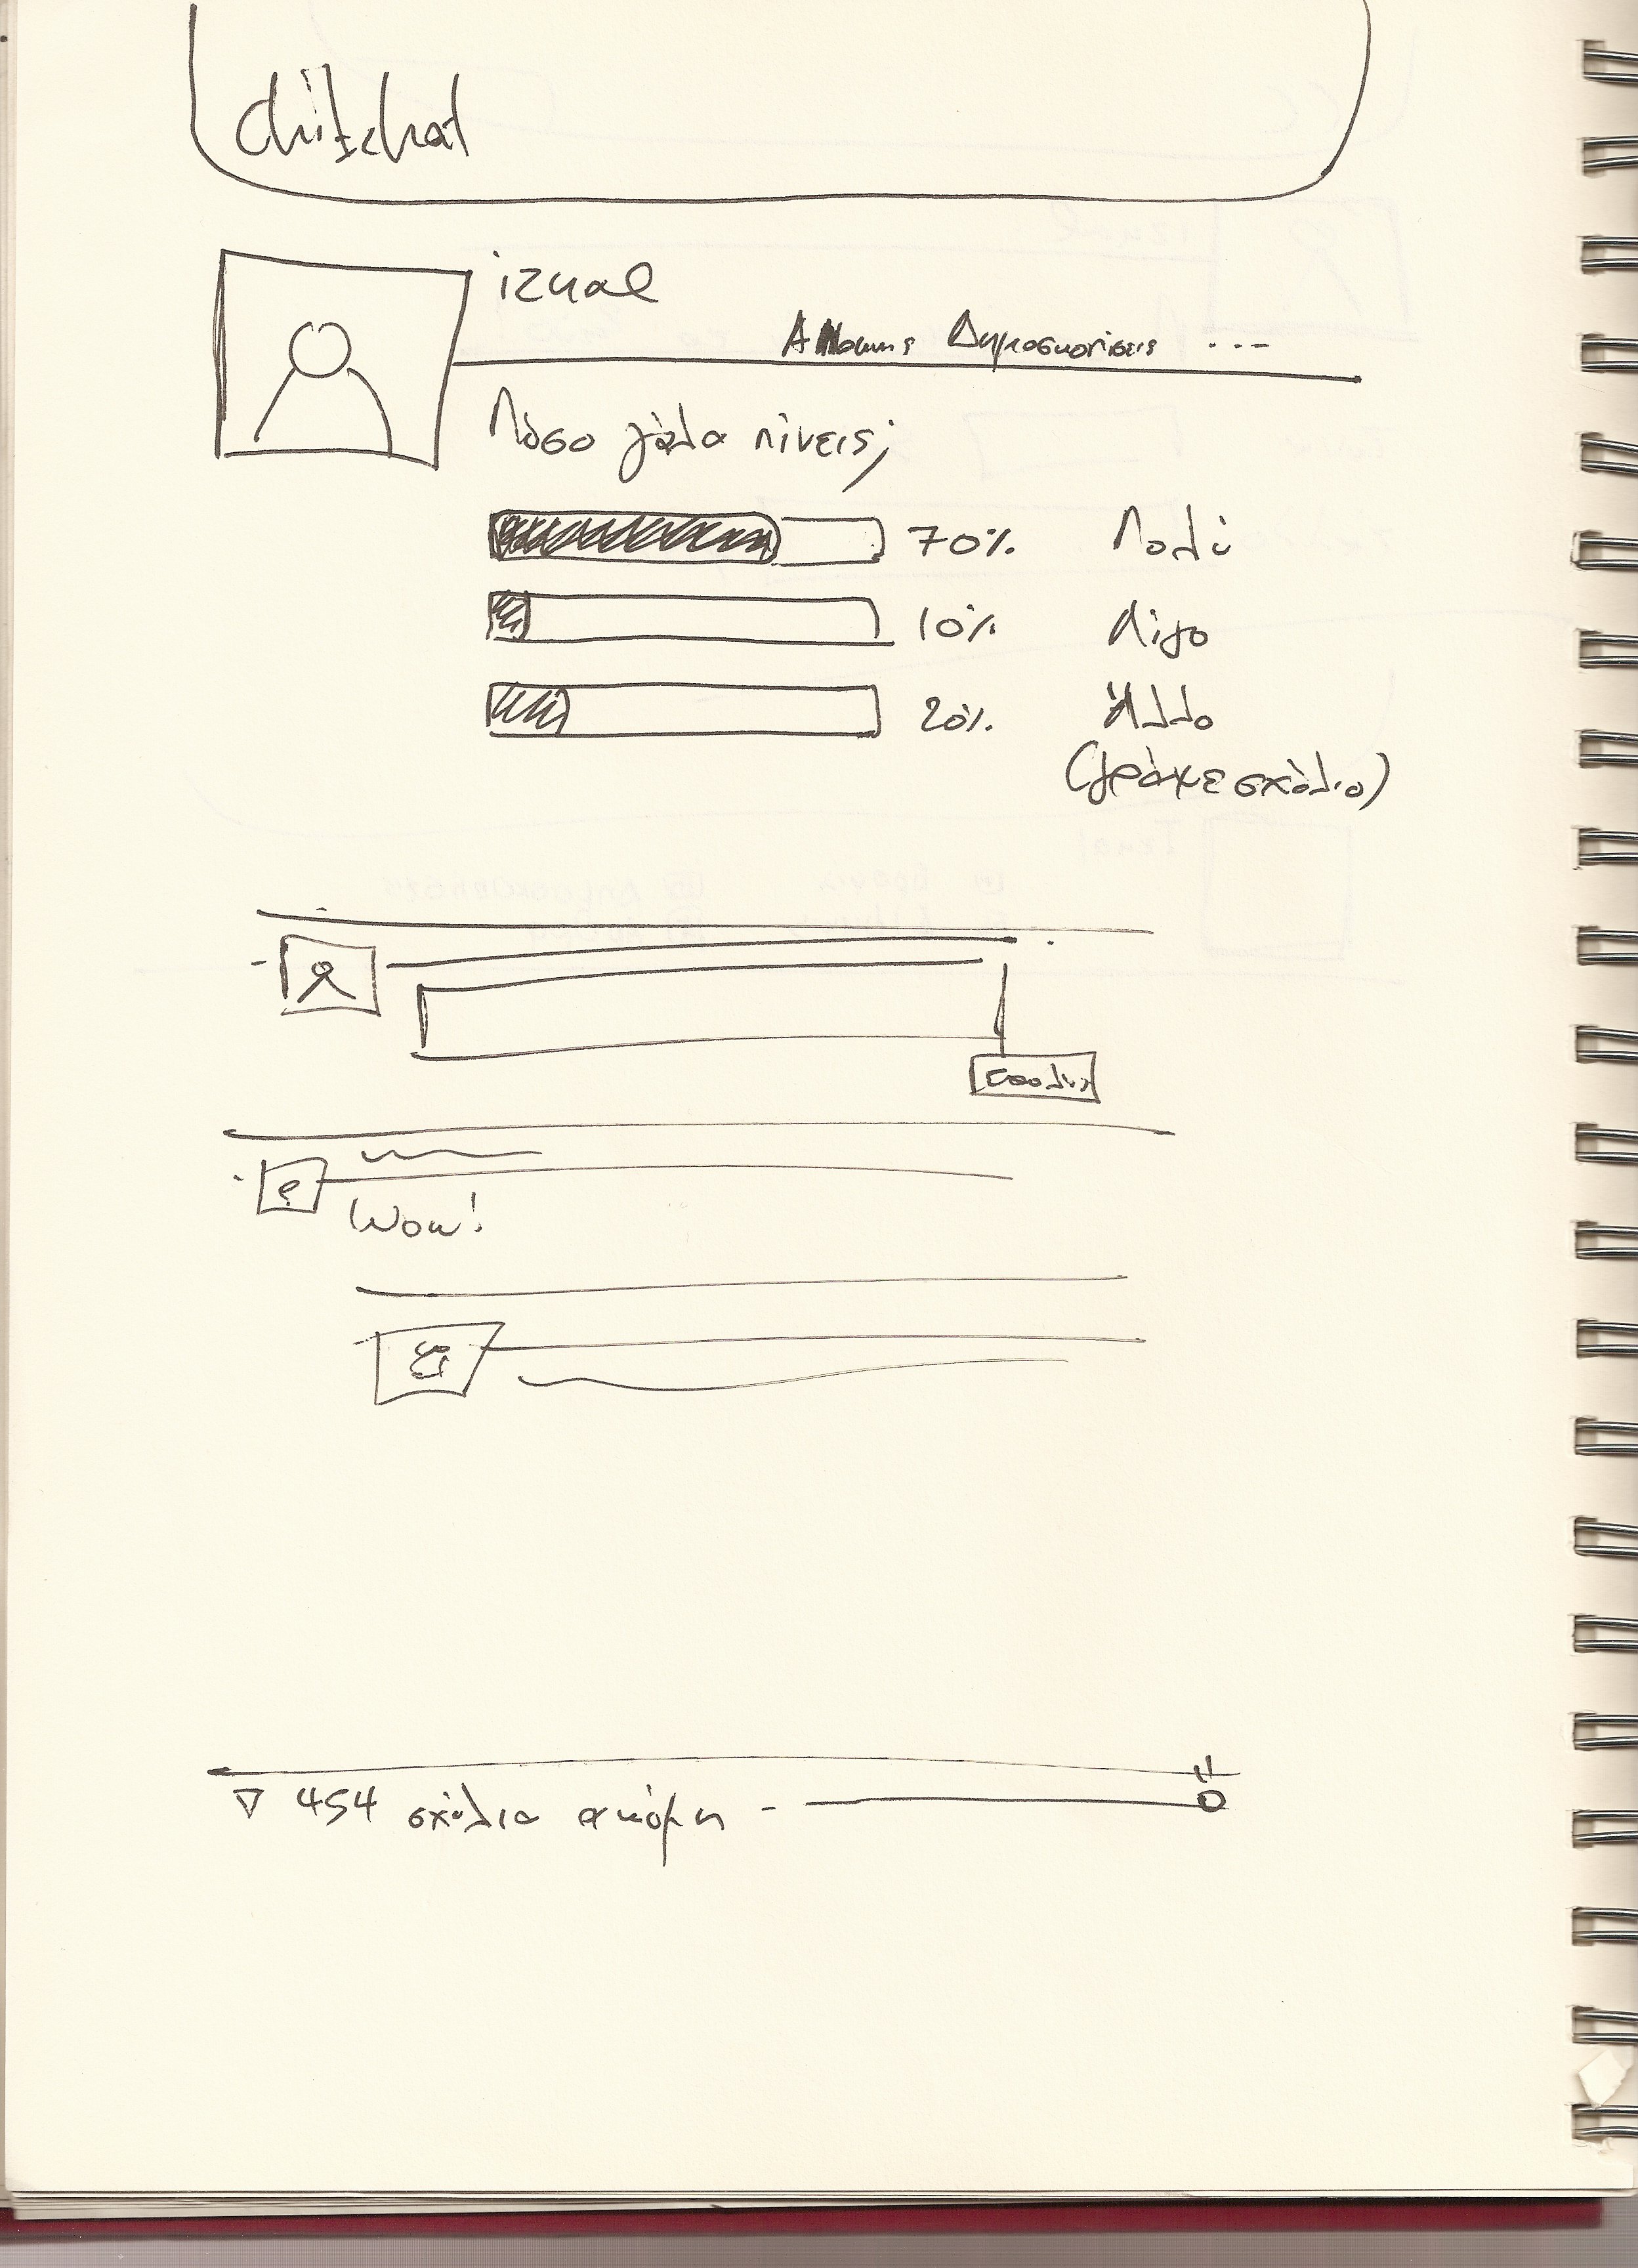 chitchat
izual
Δημοσκοπήσεις ...
Πόσο γάλα πίνεις;
70% Πολύ
10% Λίγο
20% Άλλο
(γράψε σχόλιο)
Wow!
▽ 454 σχόλια ακόμη -